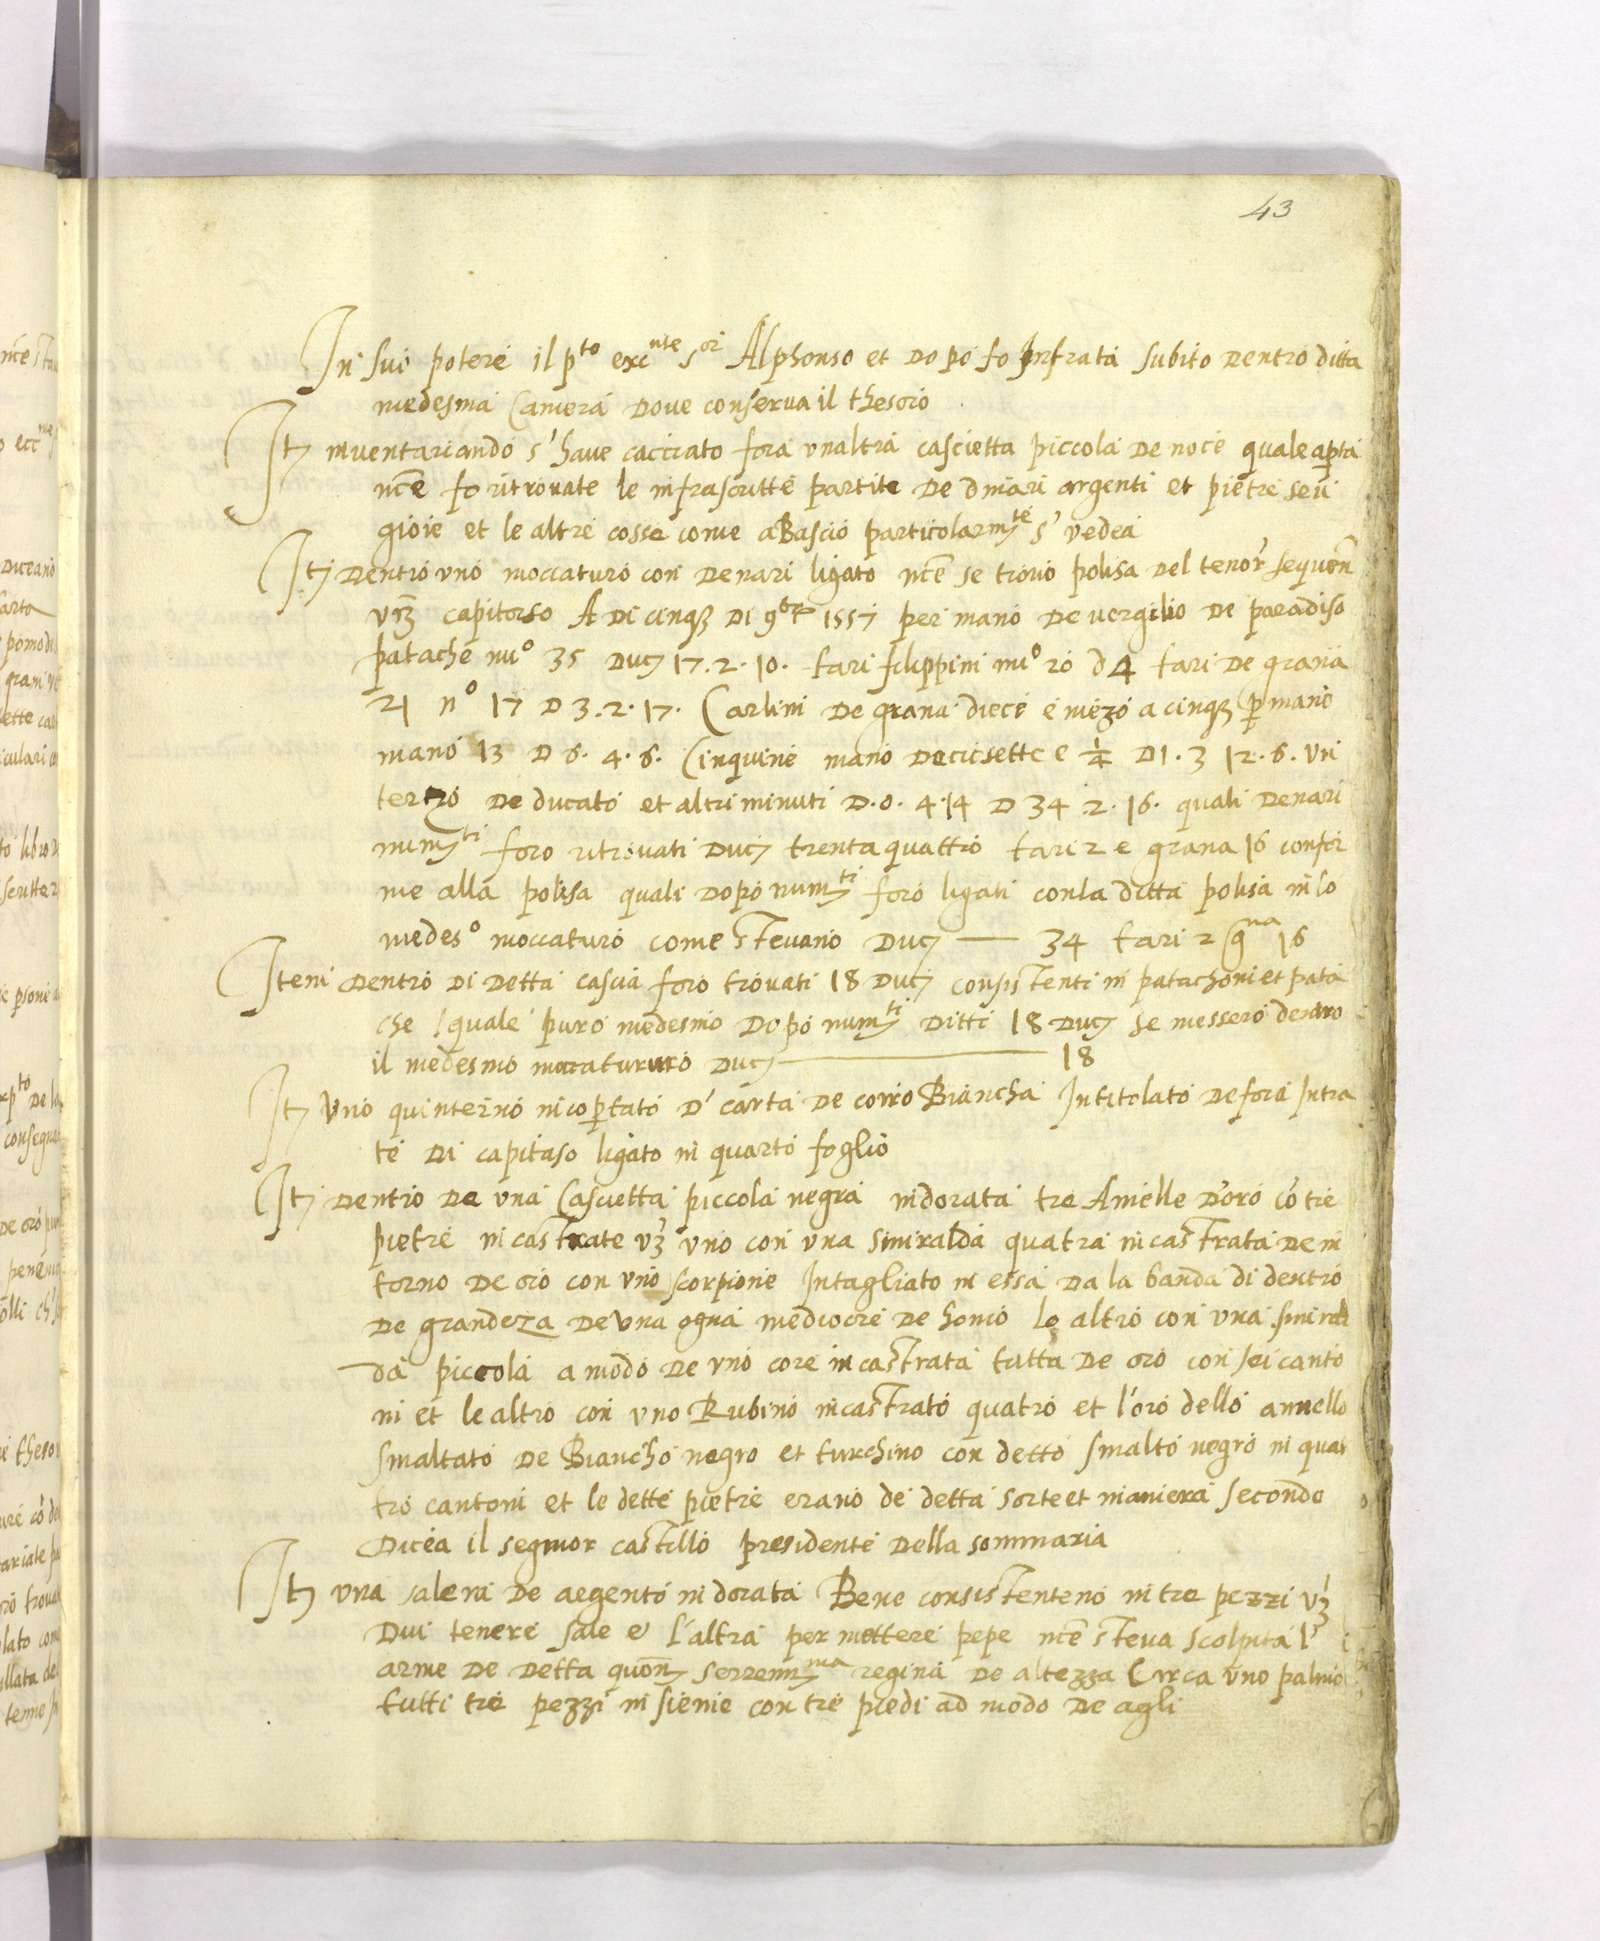 43
In suo potere il p^to exc^nte s^or Alphonso et dopo fo Infrata subito dentro ditta
medesma Camera dove conserva il thesoro
It inventariando s'have cacciato fora unaltra cascietta piccola de noce quale aperta
nce fo ritrovate le infrascritte partite de dinari argenti et pietre seu
gioie et le altre cosse come abascio particolarm^te s' vedea
It dentro uno moccaturo con denari ligato nce se trovò polisa del tenor sequen
vz capitorso A di cinq di 9bre 1557 per mano de vergilio de paradiso
patache nu^o 35 duc 17.2.10. tari filippini nu^o 20 d 4 tari de grana
21 n^o 17 D 3.2.17. Carlini de grana diece e mezo a cinq p mano
mano 13 D 6.4.6. Cinquine mano decesette e D 1.3 12.6. un
tertzo de ducato et altri minuti D.0.4.14 D 34.2.16. quali denari
num^ti foro ritrovati duc trentaquattro tari 2 e grana 16 confor
me alla polisa quali dopo num^ti foro ligati con la ditta polisa in lo
medes^o moccaturo come stevano Duc — 34 tari 2 g^na 16
Item dentro di detta cascia foro trovati 18 Duc consistenti in patachoni et pata
che l quale puro medesmo dopo num^ti ditti 18 Duc se messero dentro
il medesmo moccaturo Duc — 18
It uno quinterno incopertato d' carta de coiro biancha Intitolato de fore Intra
te di capitaso ligato in quarto foglio
It dentro de una Cascietta piccola negra indorata tre Anielle d'oro cò tre
pietre incastrate vz uno con una smiralda quatra incastrata de in
torno de oro con uno scorpione Intagliato in essa da la banda di dentro
de grandeza de una ogna mediocre de homo lo altro con una smiral
da piccola a modo de uno core incastrata tutta de oro con sei canto
ni et le altro con uno Rubino incastrato quatro et l'oro dello annello
smaltato de Biancho negro et turchino con detto smalto negro in quat
tro cantoni et le dette pietre erano de detta sorte et maniera secondo
Dicea il segnior castillo presidente della sommaria
It una salera de aegento indorata Bene consistenteno in tre pezzi vz
Dui tenere sale e l'altra per mettere pepe nce steva scolpita l'
arme de detta quon serrenis^ma regina de altezza Circa uno palmo
tutti tre pezzi insieme con tre piedi ad modo de agli